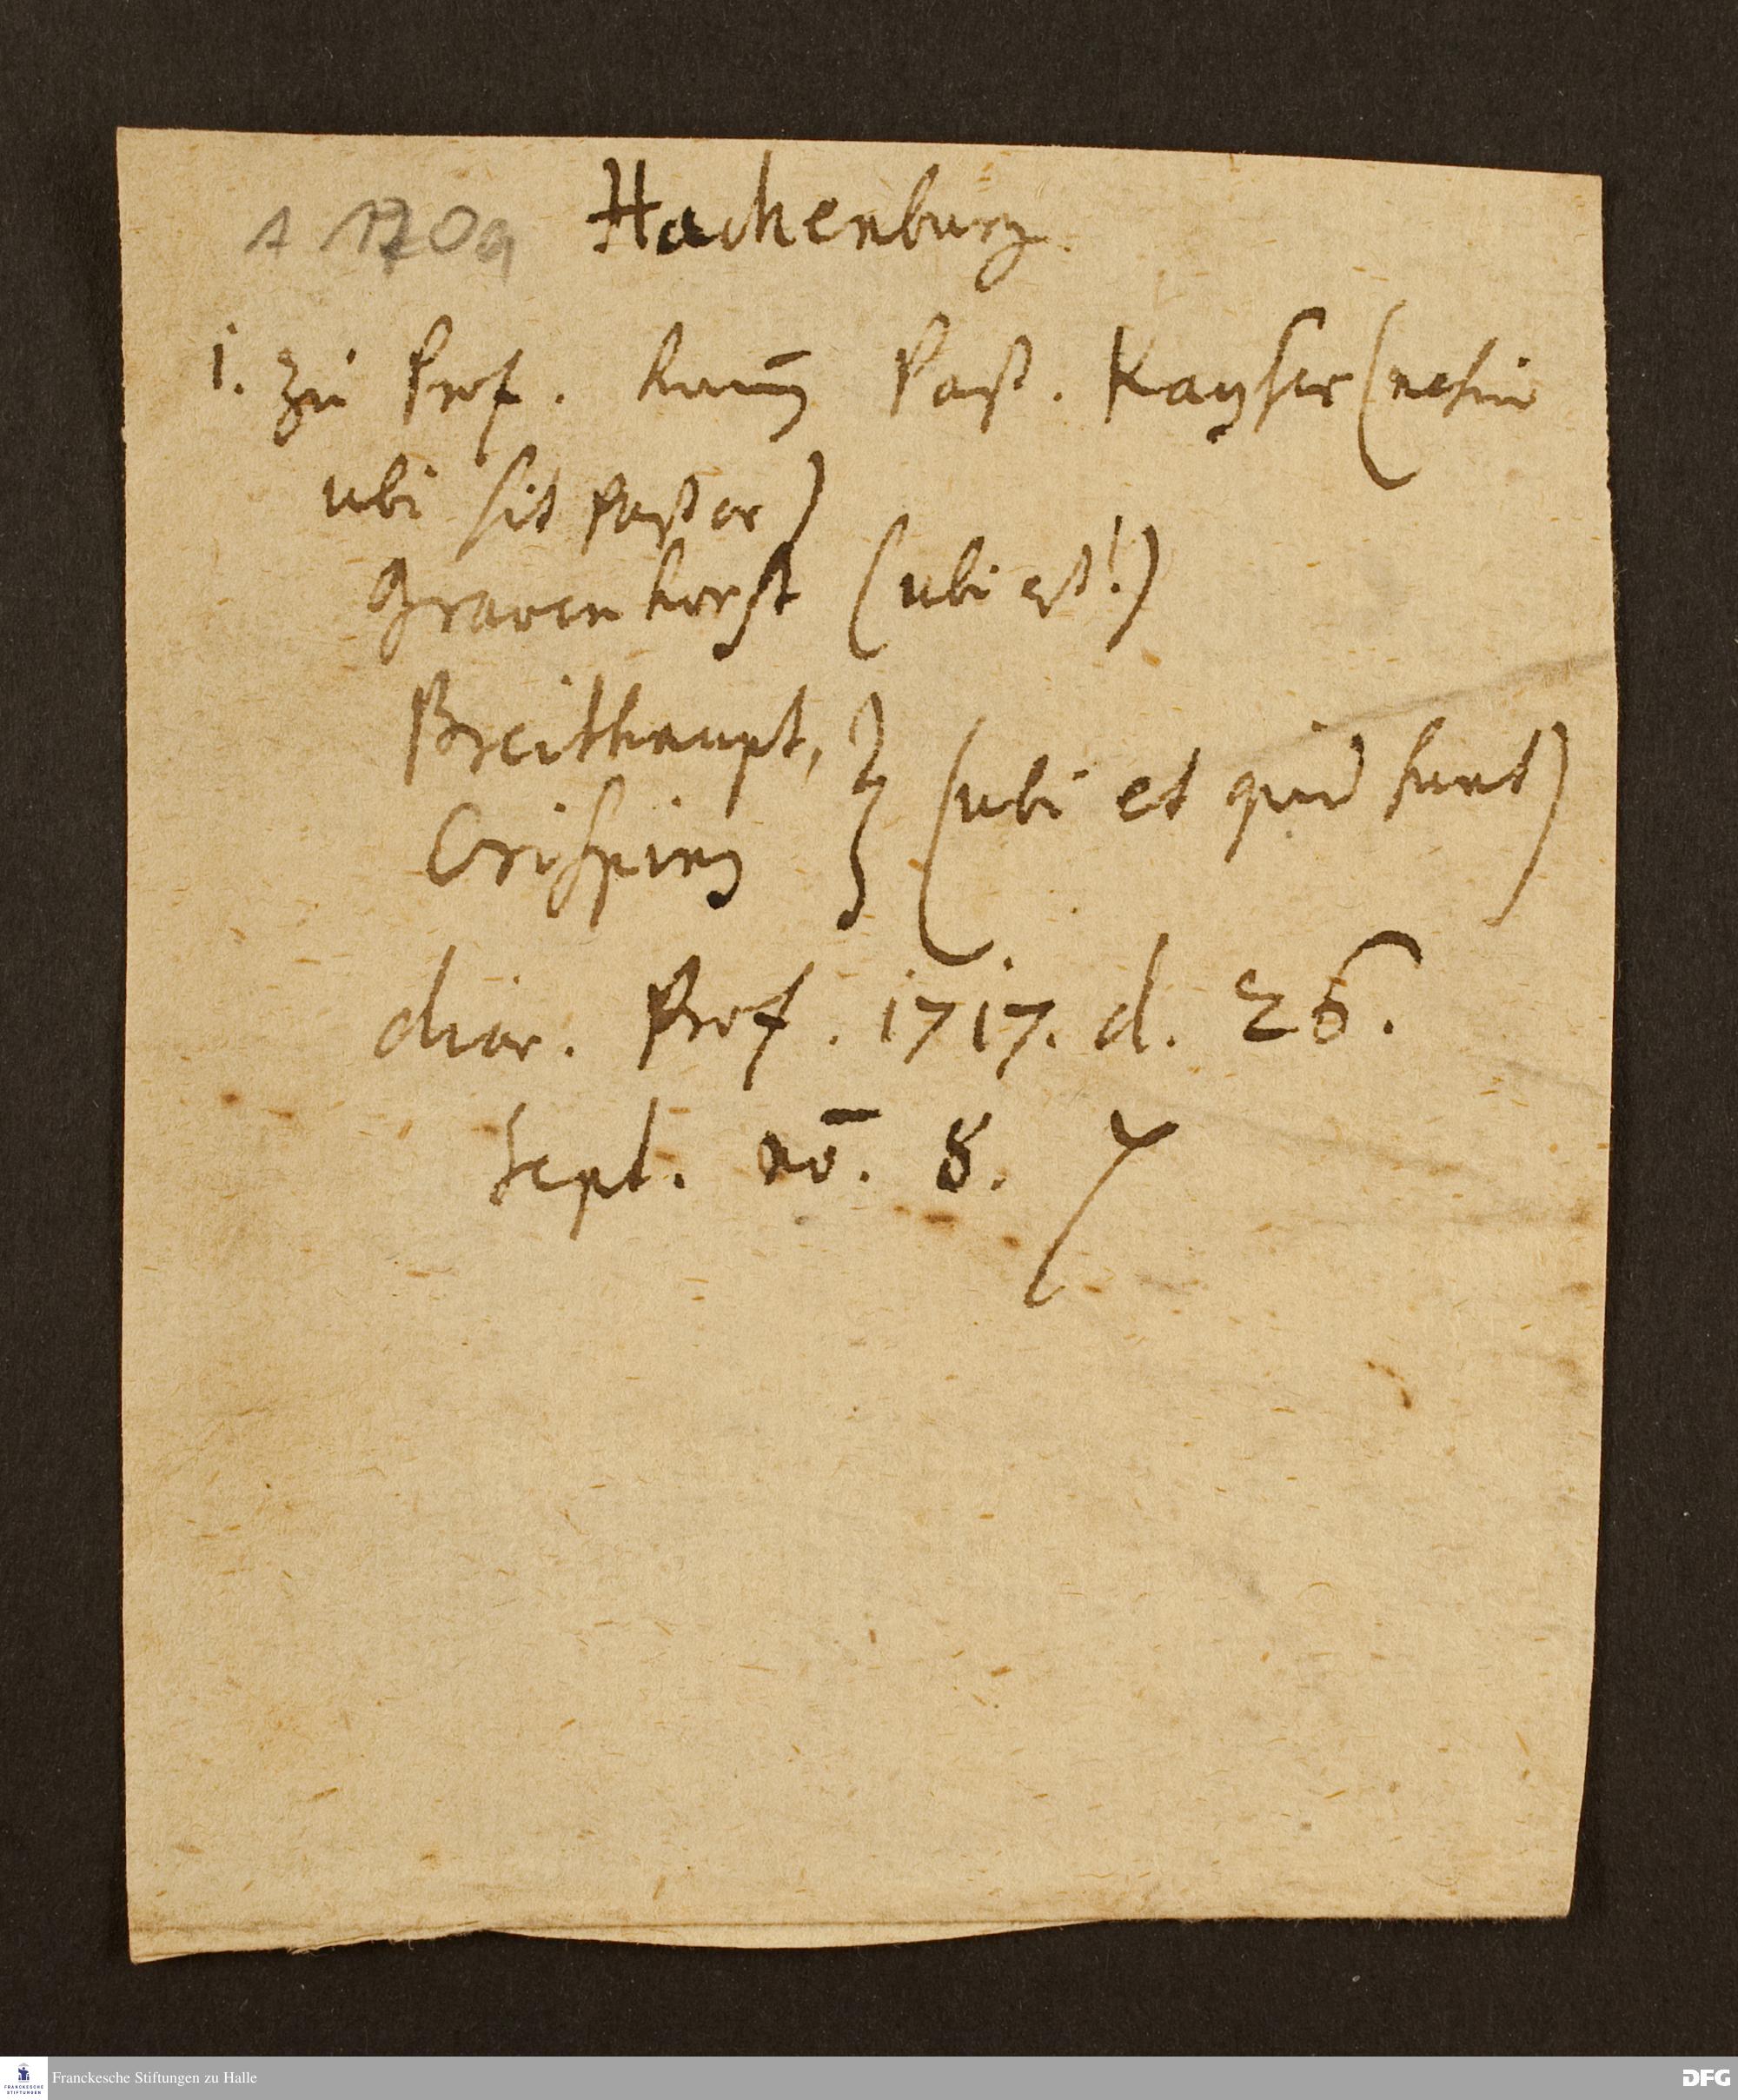 A 170a Hachenburg.
1. Zu Prof. kamen Past. Kayser (nescio
ubi sit pastor)
Gravenhorst (ubi est!)
Breithaupt, } (ubi et quid sunt)
Crispinus
diar. Prof. 1717. d. 26.
Sept. no. 8.
FRANCKESCHE STIFTUNGEN
Franckesche Stiftungen zu Halle
DFG